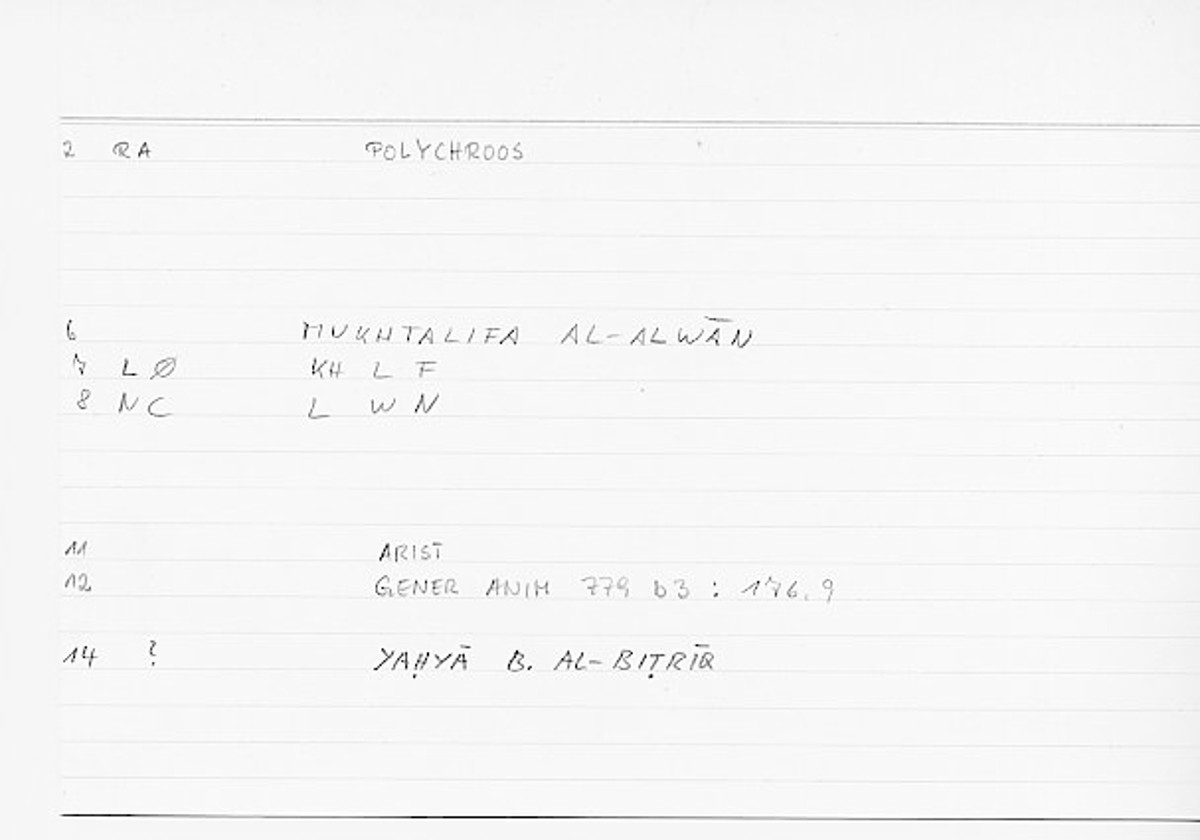 2 RA POLYCHROOS
6 MUKHTALIFA AL-ALWĀN
7 LØ KH L F
8 NC L WN
11 ARIST
12 GENER ANIM 779 b3 : 176.9
14 ? YAḤYĀ B. AL-BIṬRĪQ